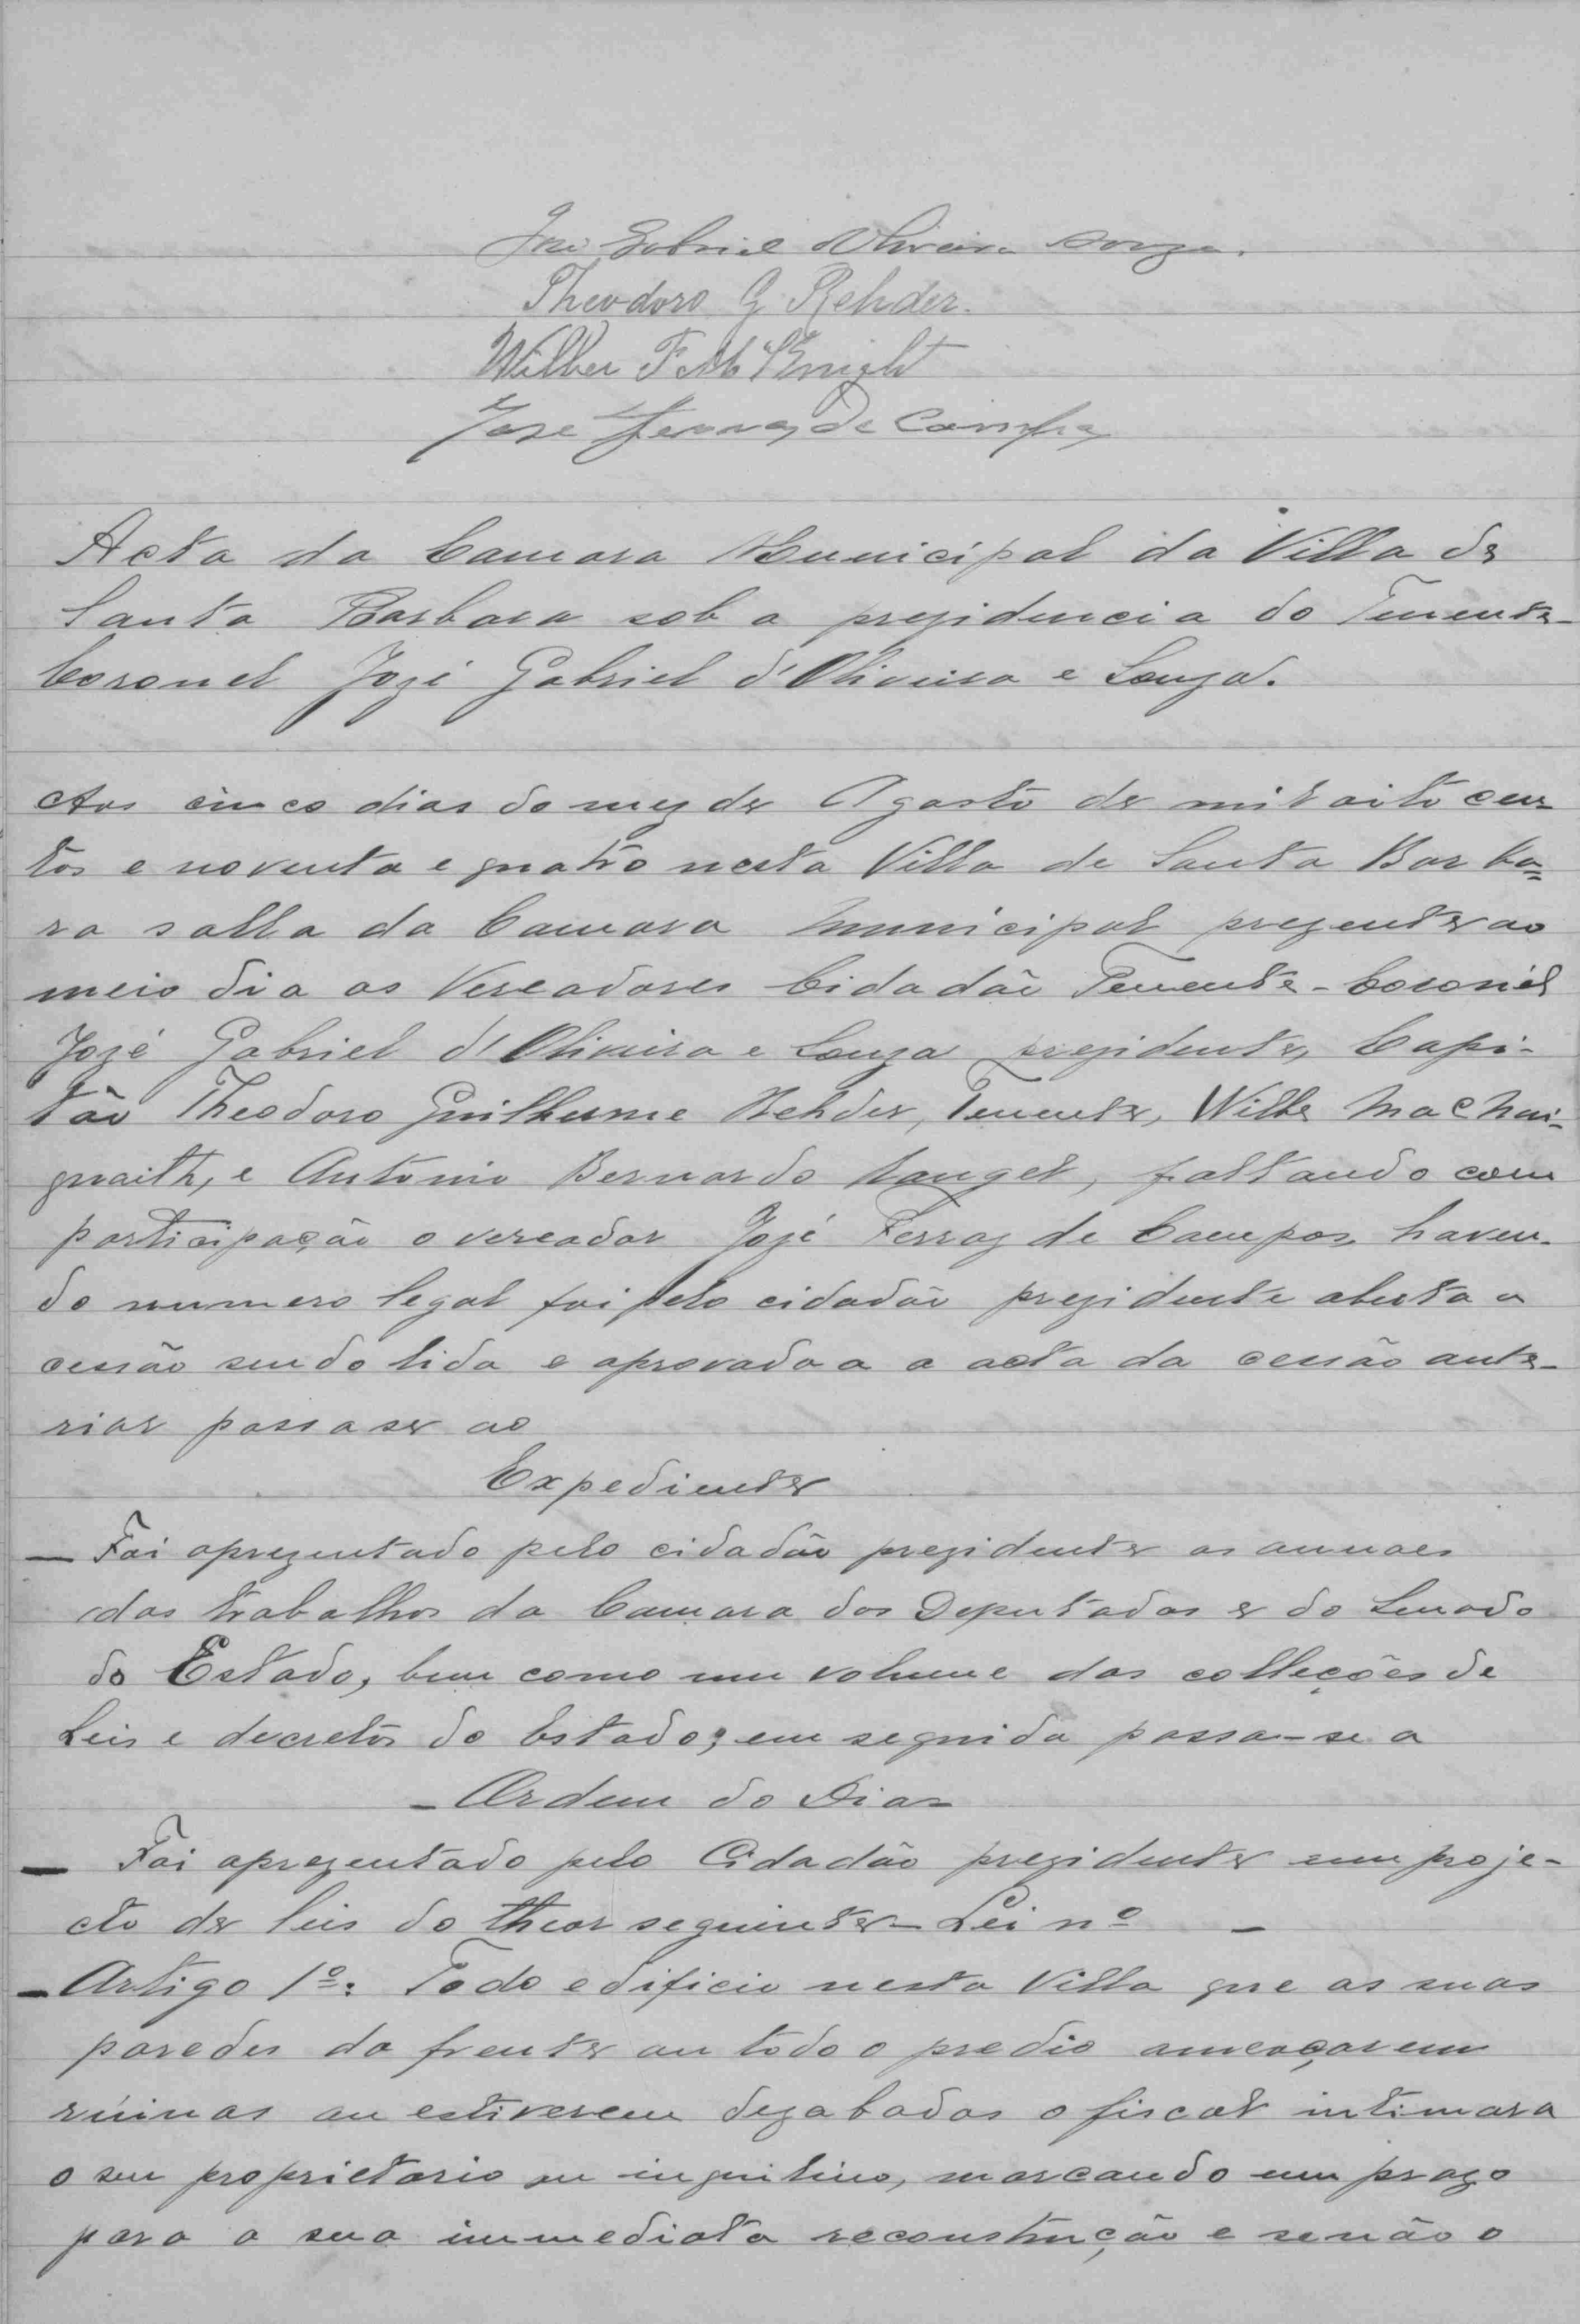 José Gabriel d'Oliveira Souza.
Theodoro G. Rehder.
Wilber F. McKnight
José Ferraz de Campos
Acta da Camara Municipal da Villa de
Santa Barbara sob a prezidencia do Tenente-
Coronel Jozé Gabriel d'Oliveira e Souza.
Aos cinco dias do mez de Agosto de mil oito cen-
tos e noventa e quatro nesta Villa de Santa Barba=
ra salla da Camara Municipal prezente ao
meio dia os Vereadores Cidadão Tenente-Coronél
Jozé Gabriel d'Oliveira e Souza prezidente, Capi-
tão Theodoro Guilherme Rehder, Tenente, Wilber Mac Nai-
gnaith, e Antonio Bernardo Rangel, faltando com
participação o vereador Jozé Ferraz de Campos haven-
do numero legal foi pelo cidadão prezidente aberta a
cessão sendo lida e aprovada a a acta da cessão ante-
rior passa se ao
Expediente
— Foi aprezentado pelo cidadão prezidente os annaes
dos trabalhos da Camara dos Deputados e do Senado
do Estado, bem como um volume das colleções de
Leis e decretos do Estado; em seguida passa-se a
- Ordem do Dia -
— Foi aprezentado pelo Cidadão prezidente um proje-
cto de leis do theor seguinte - Lei nº —
- Artigo 1º: Todo edificio nesta Villa que as suas
paredes da frente ou todo o predio ameaçarem
rúinas ou estiverem dezabadas o fiscal intimara
o seu proprietario ou inquilino, marcando um prazo
para a sua immediata reconstrucção e se não o